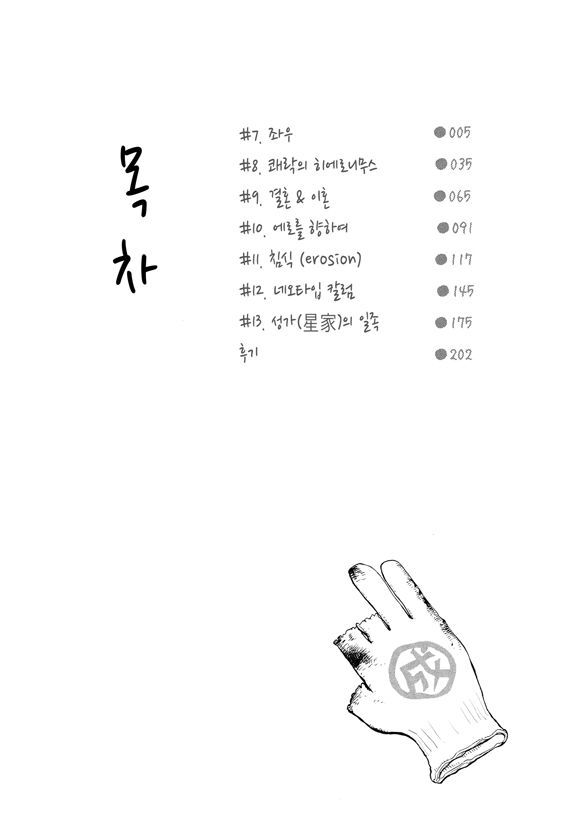 목차
#7. 좌우 ●005
#8. 쾌락의 히에로니무스 ●035
#9. 결혼 & 이혼 ●065
#10. 에로를 향하여 ●091
#11. 침식 (erosion) ●117
#12. 네오타입 칼럼 ●145
#13. 성가(星家)의 일족 ●175
후기 ●202
成